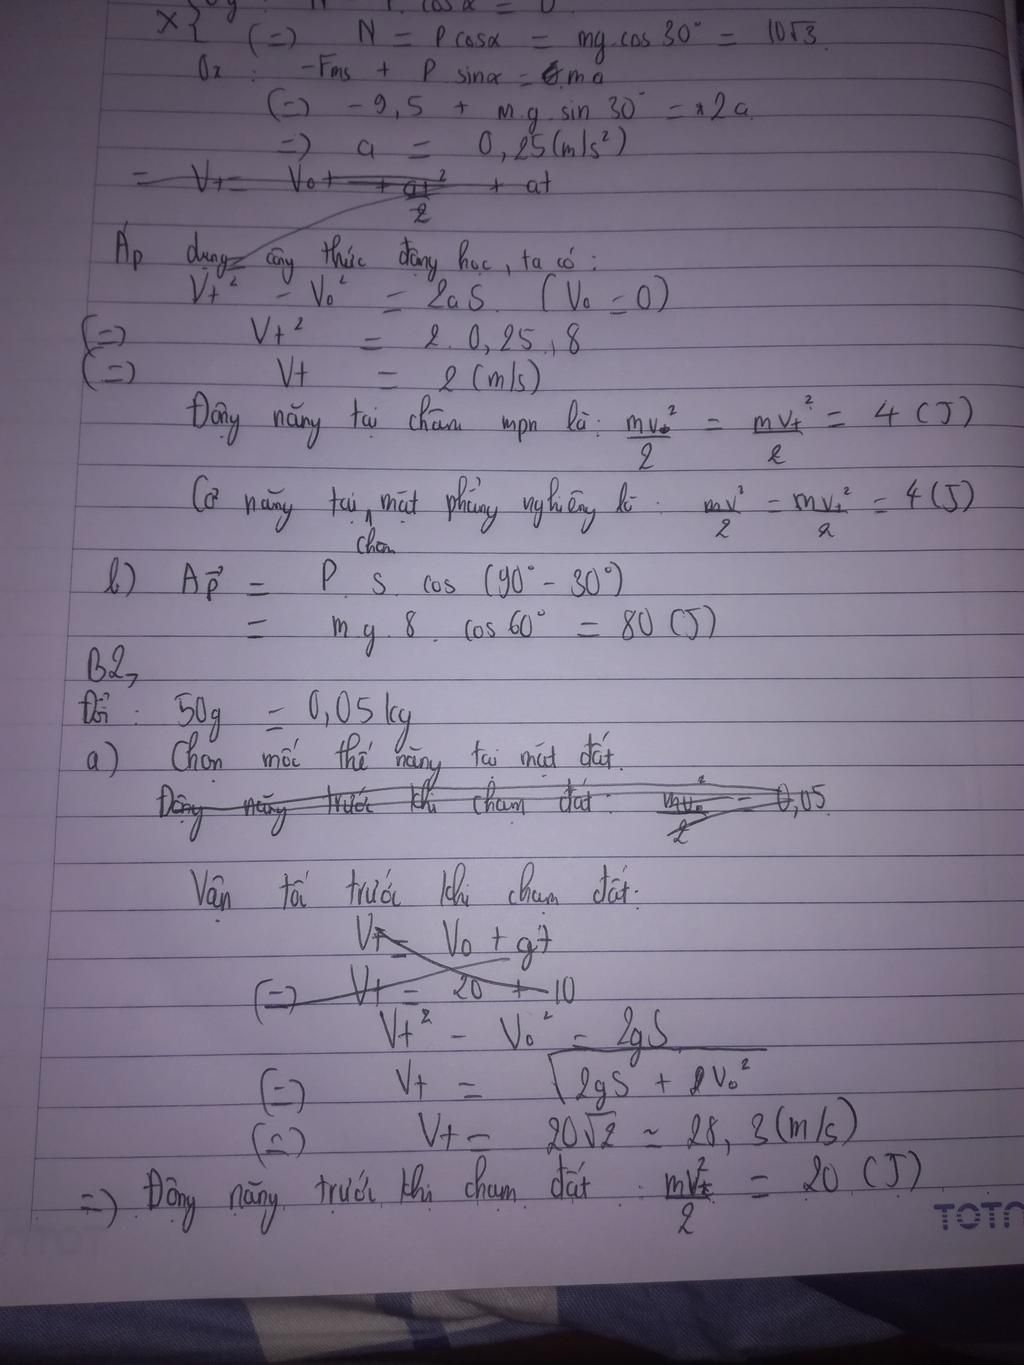 X { (=) N = P cosα = mg.cos 30° = 10√3
Ox : -Fms + P sinα = ma
(=) - 9,5 + m.g sin 30° = 2a
=) a = 0,25 (m/s²)
= Vt = Vo + at²/2 + at
Áp dụng công thức động học, ta có :
Vt² - Vo² = 2aS (Vo = 0)
(=) Vt² = 2. 0,25 . 8
(=) Vt = 2 (m/s)
Động năng tại chân mpn là : mv²/2 = mvt²/2 = 4 (J)
Cơ năng tại chân mặt phẳng nghiêng là : mv²/2 = mvt²/2 = 4 (J)
b) AP⃗ = P. S. cos (90° - 30°)
= m g. 8. cos 60° = 80 (J)
B2,
Đổi : 50g = 0,05 kg
a) Chọn mốc thế năng tại mặt đất.
Động năng trước khi chạm đất : mv²/2 = 0,05
Vận tốc trước khi chạm đất :
Vt = Vo + gt
(=) Vt = 20 + 10
Vt² - Vo² = 2gS
(=) Vt = √2gS + Vo²
(=) Vt = 20√2 ≃ 28,3 (m/s)
=) Động năng trước khi chạm đất : mvt²/2 = 20 (J)